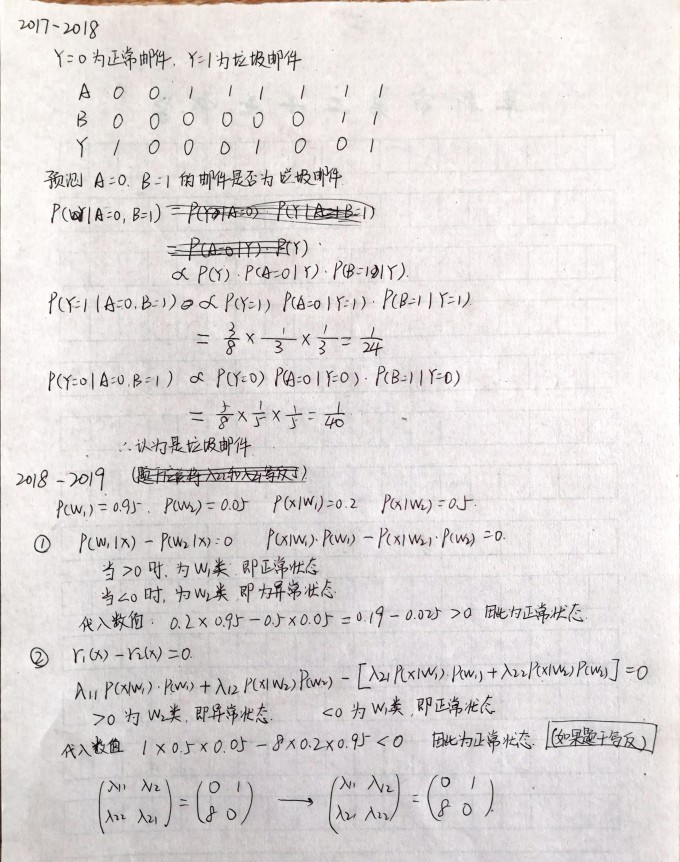 2017-2018
Y=0为正常邮件, Y=1为垃圾邮件
A 0 0 1 1 1 1 1 1
B 0 0 0 0 0 0 1 1
Y 1 0 0 0 1 0 0 1
预测 A=0, B=1 的邮件是否为垃圾邮件
P(Y|A=0, B=1)
∝ P(Y)·P(A=0|Y)·P(B=1|Y).
P(Y=1|A=0,B=1) ∝ P(Y=1) P(A=0|Y=1)·P(B=1|Y=1)
= 3/8 × 1/3 × 1/3 = 1/24
P(Y=0|A=0,B=1) ∝ P(Y=0) P(A=0|Y=0)·P(B=1|Y=0)
= 5/8 × 1/5 × 1/5 = 1/40
∴认为是垃圾邮件
2018-2019
P(W₁)=0.95, P(W₂)=0.05 P(x|W₁)=0.2 P(x|W₂)=0.5.
① P(W₁|x) - P(W₂|x)=0 P(x|W₁)·P(W₁) - P(x|W₂)·P(W₂)=0.
当>0时, 为W₁类 即正常状态
当<0时, 为W₂类 即为异常状态
代入数值: 0.2×0.95-0.5×0.05=0.19-0.025>0 因此为正常状态
② r₁(x)-r₂(x)=0.
λ₁₁ P(x|W₁)·P(W₁)+λ₁₂ P(x|W₂)P(W₂) - [λ₂₁P(x|W₁)·P(W₁)+λ₂₂P(x|W₂)P(W₂)]=0
>0 为W₂类, 即异常状态. <0 为W₁类, 即正常状态
代入数值 1×0.5×0.05-8×0.2×0.95<0 因此为正常状态 (如果题干写反)
(λ₁₁ λ₁₂ λ₂₂ λ₂₁) = (0 1 8 0) → (λ₁₁ λ₁₂ λ₂₁ λ₂₂) = (0 1 8 0).